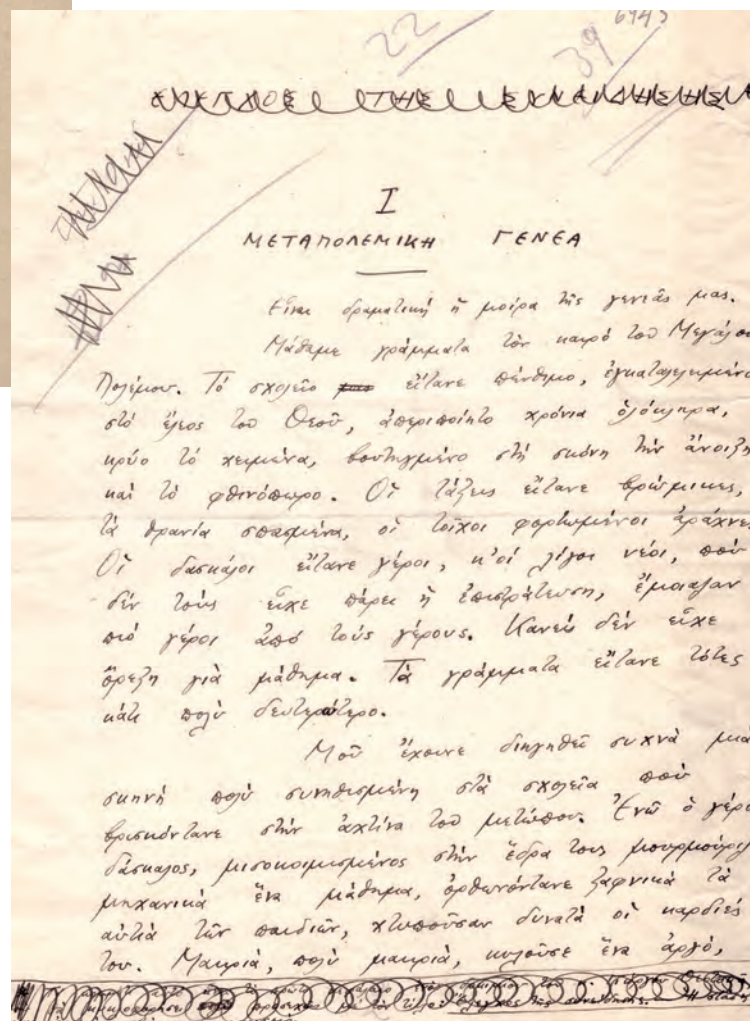 22
39
6943
ΕΛΕΓΧΟΣ ΤΗΣ ΣΥΝΕΙΔΗΣΗΣ
I
ΜΕΤΑΠΟΛΕΜΙΚΗ ΓΕΝΕΑ
Εἶναι δραματική ἡ μοίρα τῆς γενιᾶς μας.
Μάθαμε γράμματα τόν καιρό τοῦ Μεγάλου
Πολέμου. Τό σχολεῖο εἴτανε πένθιμο, ἐγκαταλειμμένο
στό ἔλεος τοῦ Θεοῦ, ἀπεριποίητο χρόνια ὁλόκληρα,
κρύο τό χειμώνα, βουτηγμένο στή σκόνη τήν ἄνοιξη
καί τό φθινόπωρο. Οἱ τάξεις εἴτανε βρώμικες,
τά θρανία σπασμένα, οἱ τοῖχοι φορτωμένοι ἀράχνες.
Οἱ δασκάλοι εἴτανε γέροι, κ' οἱ λίγοι νέοι, πού
δέν τούς εἶχε πάρει ἡ ἐπιστράτευση, ἔμοιαζαν
πιό γέροι ἀπό τούς γέρους. Κανείς δέν εἶχε
ὄρεξη γιά μάθημα. Τά γράμματα εἴτανε τότες
κάτι πολύ δευτερώτερο.
Μοῦ ἔχουνε διηγηθεῖ συχνά μιά
σκηνή πολύ συνηθισμένη στά σχολεῖα πού
βρισκόντανε στήν ἀχτίνα τοῦ μετώπου. Ἐνῶ ὁ γέρο
δάσκαλος, μισοκοιμισμένος στήν ἕδρα του, μουρμούριζε
μηχανικά ἕνα μάθημα, ὀρθωνόντανε ξαφνικά τά
αὐτιά τῶν παιδιῶν, χτυπούσαν δυνατά οἱ καρδιές
των. Μακριά, πολύ μακριά, κυλοῦσε ἕνα ἀργό,